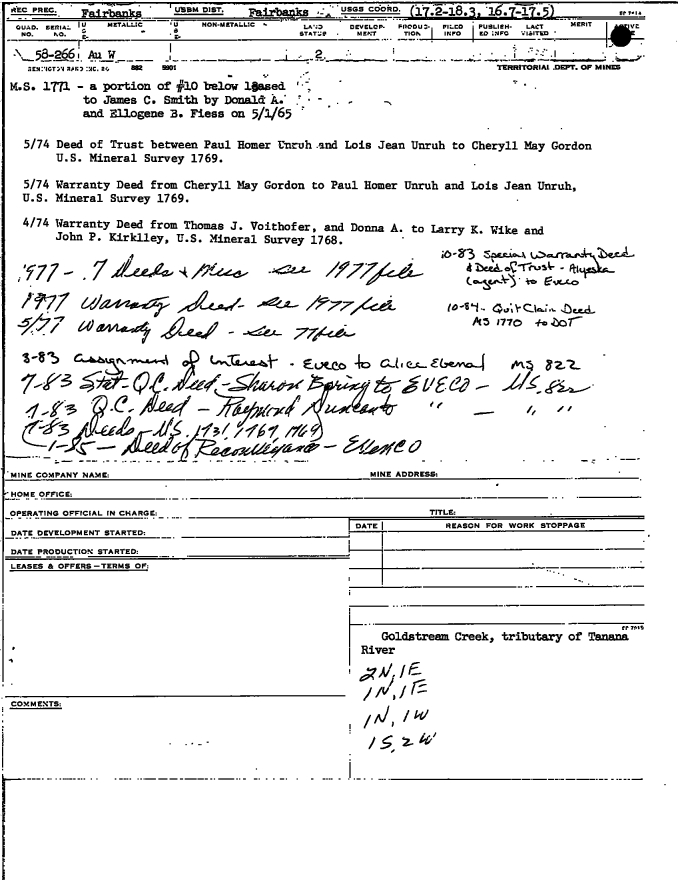 REC PREC. Fairbanks USBM DIST. Fairbanks USGS COORD. (17.2-18.3, 16.7-17.5)
QUAD. NO. SERIAL NO. METALLIC NON-METALLIC LAND STATUS DEVELOP- MENT PRODUC- TION FILED INFO PUBLISH- ED INFO LAST VISITED MERIT ACTIVE
58-266 Au W 2
REMINGTON RAND INC. 882 5901 TERRITORIAL DEPT. OF MINES
M.S. 1771 - a portion of #10 below leased
to James C. Smith by Donald A.
and Ellogene B. Fiess on 5/1/65
5/74 Deed of Trust between Paul Homer Unruh and Lois Jean Unruh to Cheryll May Gordon
U.S. Mineral Survey 1769.
5/74 Warranty Deed from Cheryll May Gordon to Paul Homer Unruh and Lois Jean Unruh,
U.S. Mineral Survey 1769.
4/74 Warranty Deed from Thomas J. Voithofer, and Donna A. to Larry K. Wike and
John P. Kirklley, U.S. Mineral Survey 1768.
1977 - 7 Deeds & Misc see 1977 file
1977 Warranty Deed - see 1977 file
5/77 Warranty Deed - see 77 file
10-83 Special Warranty Deed
& Deed of Trust - Alyeska
(agent) to Eveco
10-84 - Quit Claim Deed
MS 1770 to DOT
3-83 assignment of interest - Eveco to Alice Ebenal MS 822
7-83 Stat-Q.C. Deed - Sharon to EVECO - M.S. 822
7-83 Q.C. Deed - Raymond to " — " "
7-83 Deeds - M.S. 1731, 1767, 1769
1-85 — Deed of Reconveyance -
MINE COMPANY NAME: MINE ADDRESS:
HOME OFFICE:
OPERATING OFFICIAL IN CHARGE: TITLE:
DATE DEVELOPMENT STARTED: DATE REASON FOR WORK STOPPAGE
DATE PRODUCTION STARTED:
LEASES & OFFERS — TERMS OF:
Goldstream Creek, tributary of Tanana
River
2N, 1E
1N, 1E
1N, 1W
1S, 2W
COMMENTS: